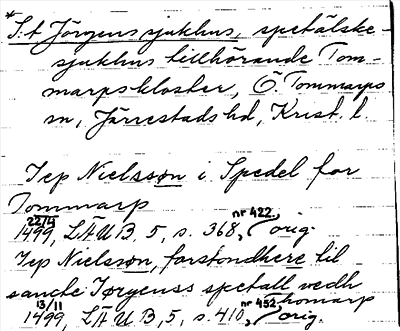 *S:t Jörgens sjukhus, spetälske-
sjukhus tillhörande Tom-
marpskloster, Ö. Tommarps
sn, Järrestads hd, Krist. l.
Jep Nielssøn i Spedel for
Tommarp
22/4 1499, LÄUB. 5, s. 368, nr 422., orig.
Jep Nielssøn, forstondhere til
sancte Jørgenss spetall vedh
Thomarp
13/11 1499, LÄUB, 5, s. 410, nr 452, orig.